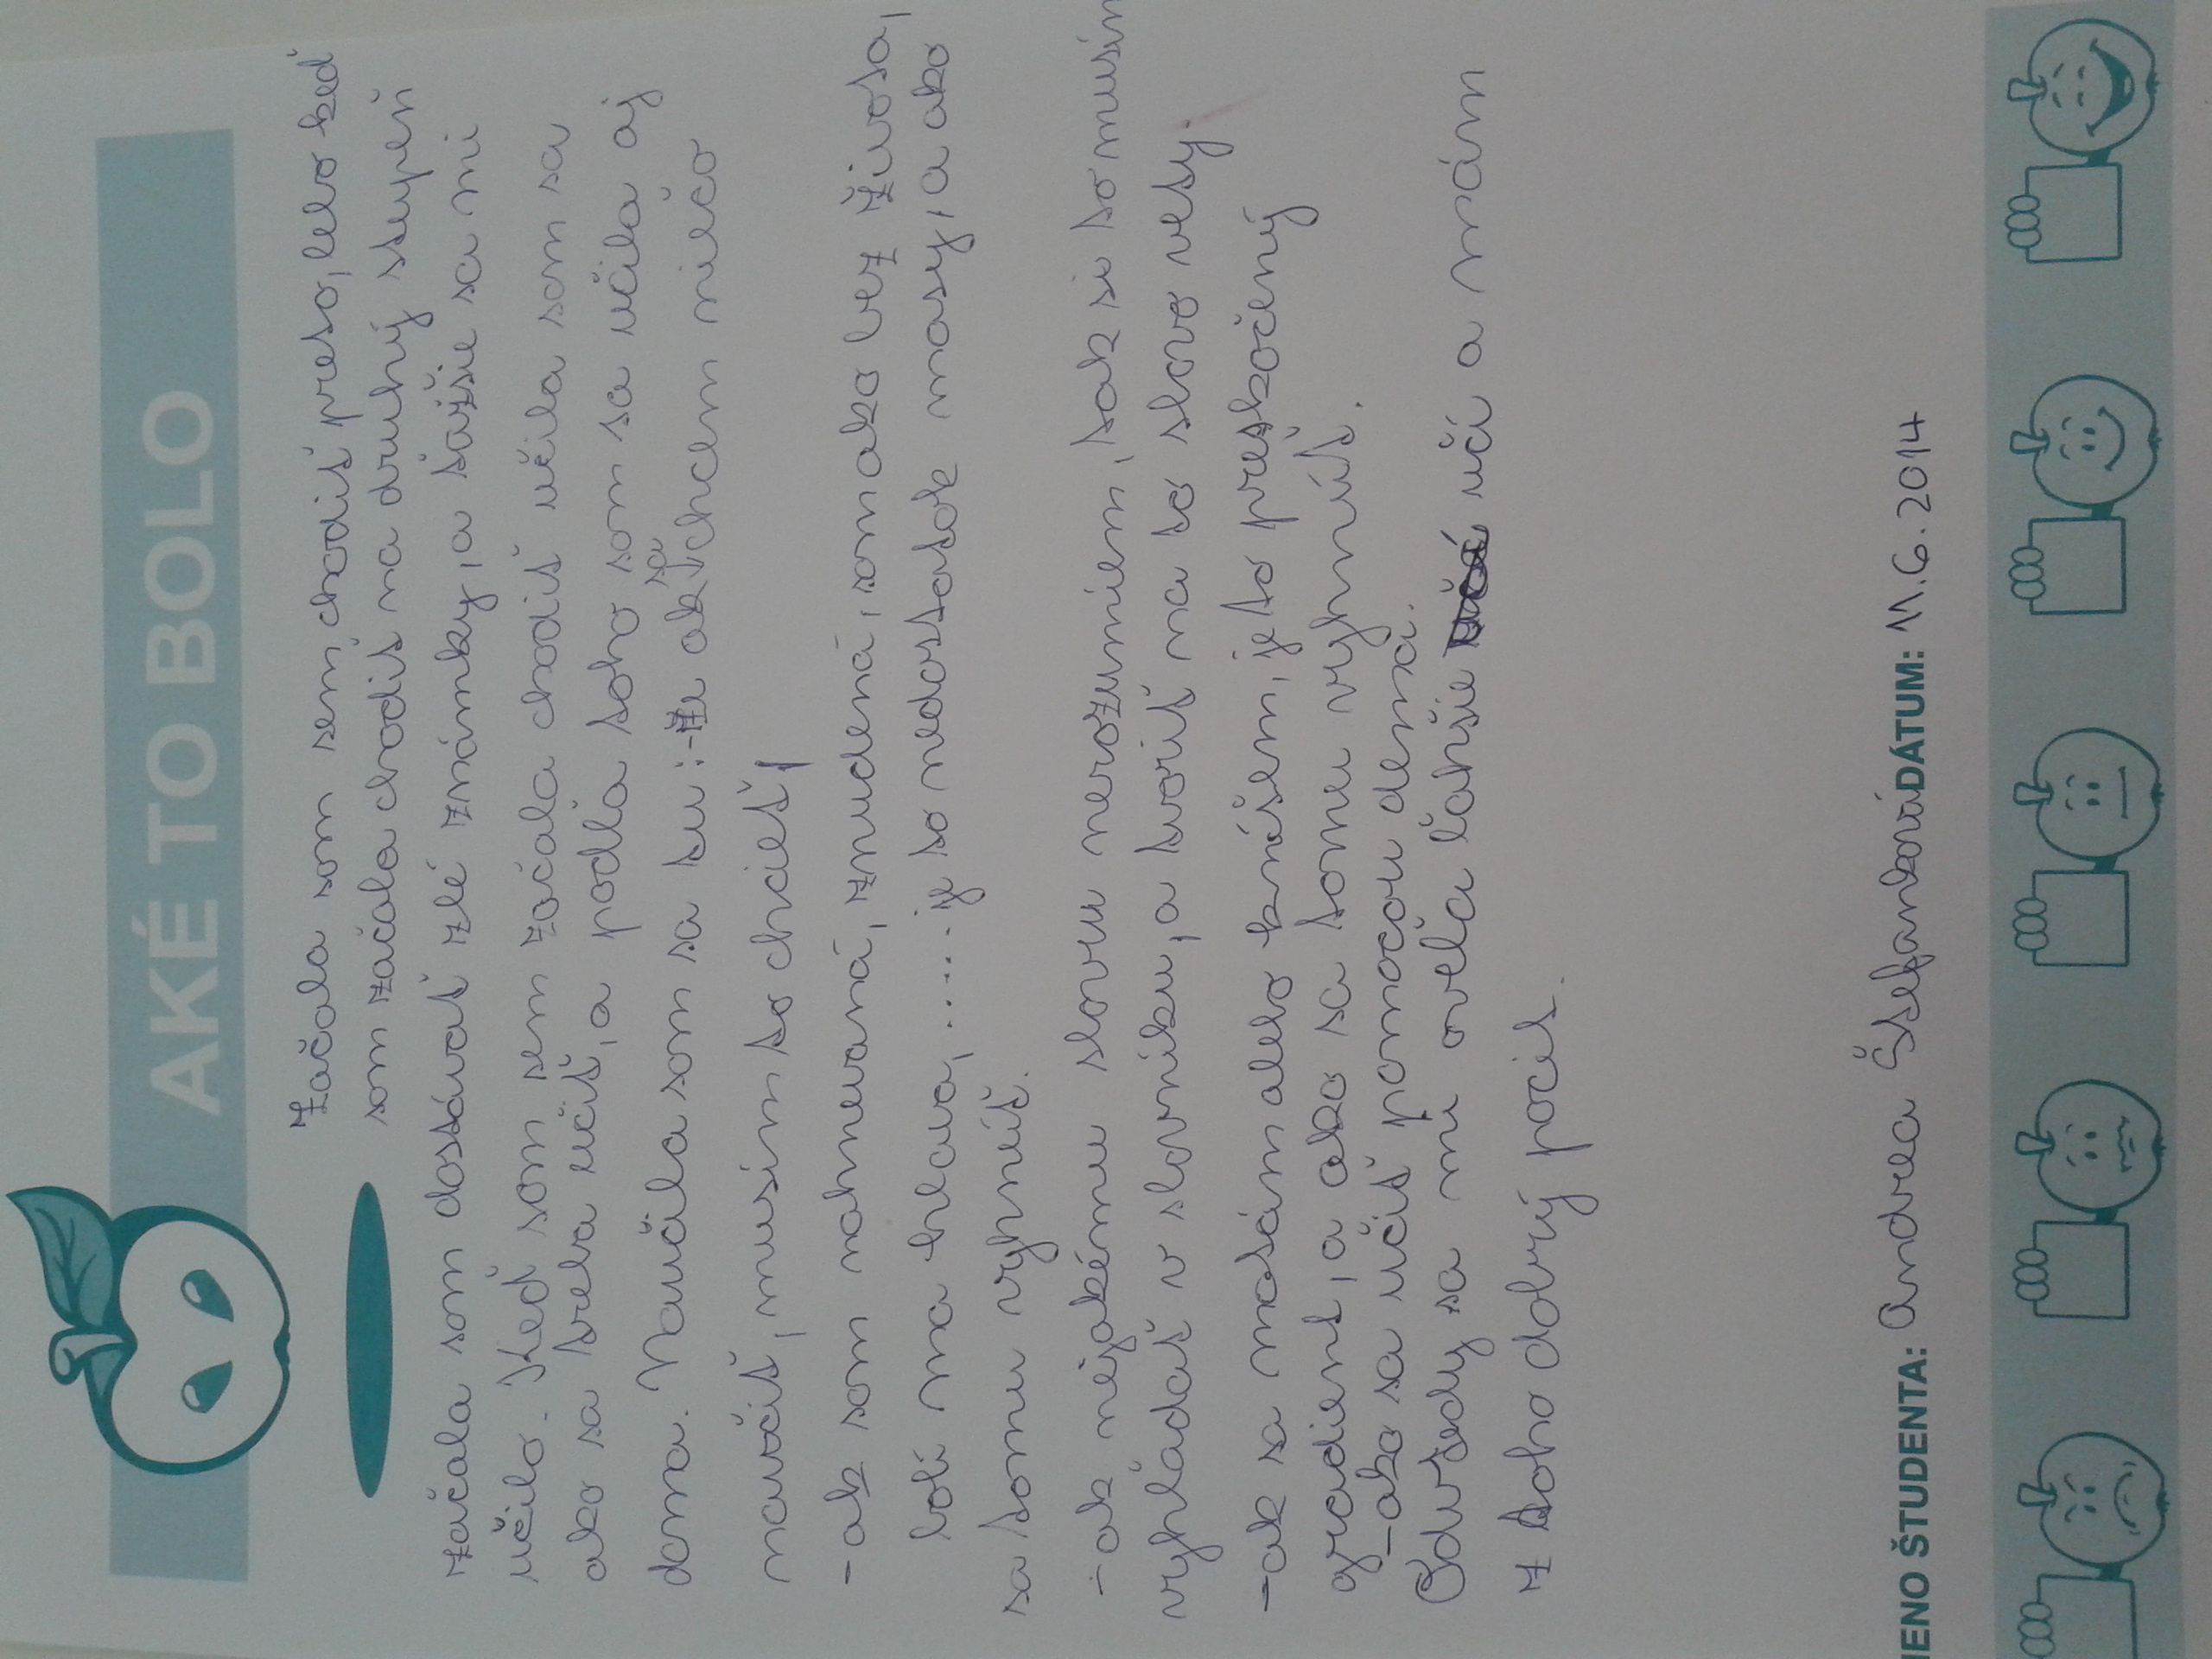 AKÉ TO BOLO
Začala som sem chodiť preto, lebo keď
som začala chodiť na druhý stupeň
začala som dostávať zlé známky, a ťažšie sa mi
učilo. Keď som sem začala chodiť učila som sa
ako sa treba učiť, a podľa toho som sa učila aj
doma. Naučila som sa tu: - že ak sa chcem niečo
naučiť, musím to chcieť,
- ak som nahnevaná, znudená, som ako bez života,
bolí ma hlava, ..... je to nedostatok masy, a ako
sa tomu vyhnúť.
- ak nejakému slovu nerozumiem, tak si to musím
vyhľadať v slovníku, a tvoriť na to slovo vety.
- ak sa motám alebo kníšem, je to preskočený
gradient, a ako sa tomu vyhnúť.
- ako sa učiť pomocou dema.
Odvtedy sa mi oveľa ľahšie učí a mám
z toho dobrý pocit.
MENO ŠTUDENTA: Andrea Štefanková DÁTUM: 11.6.2014